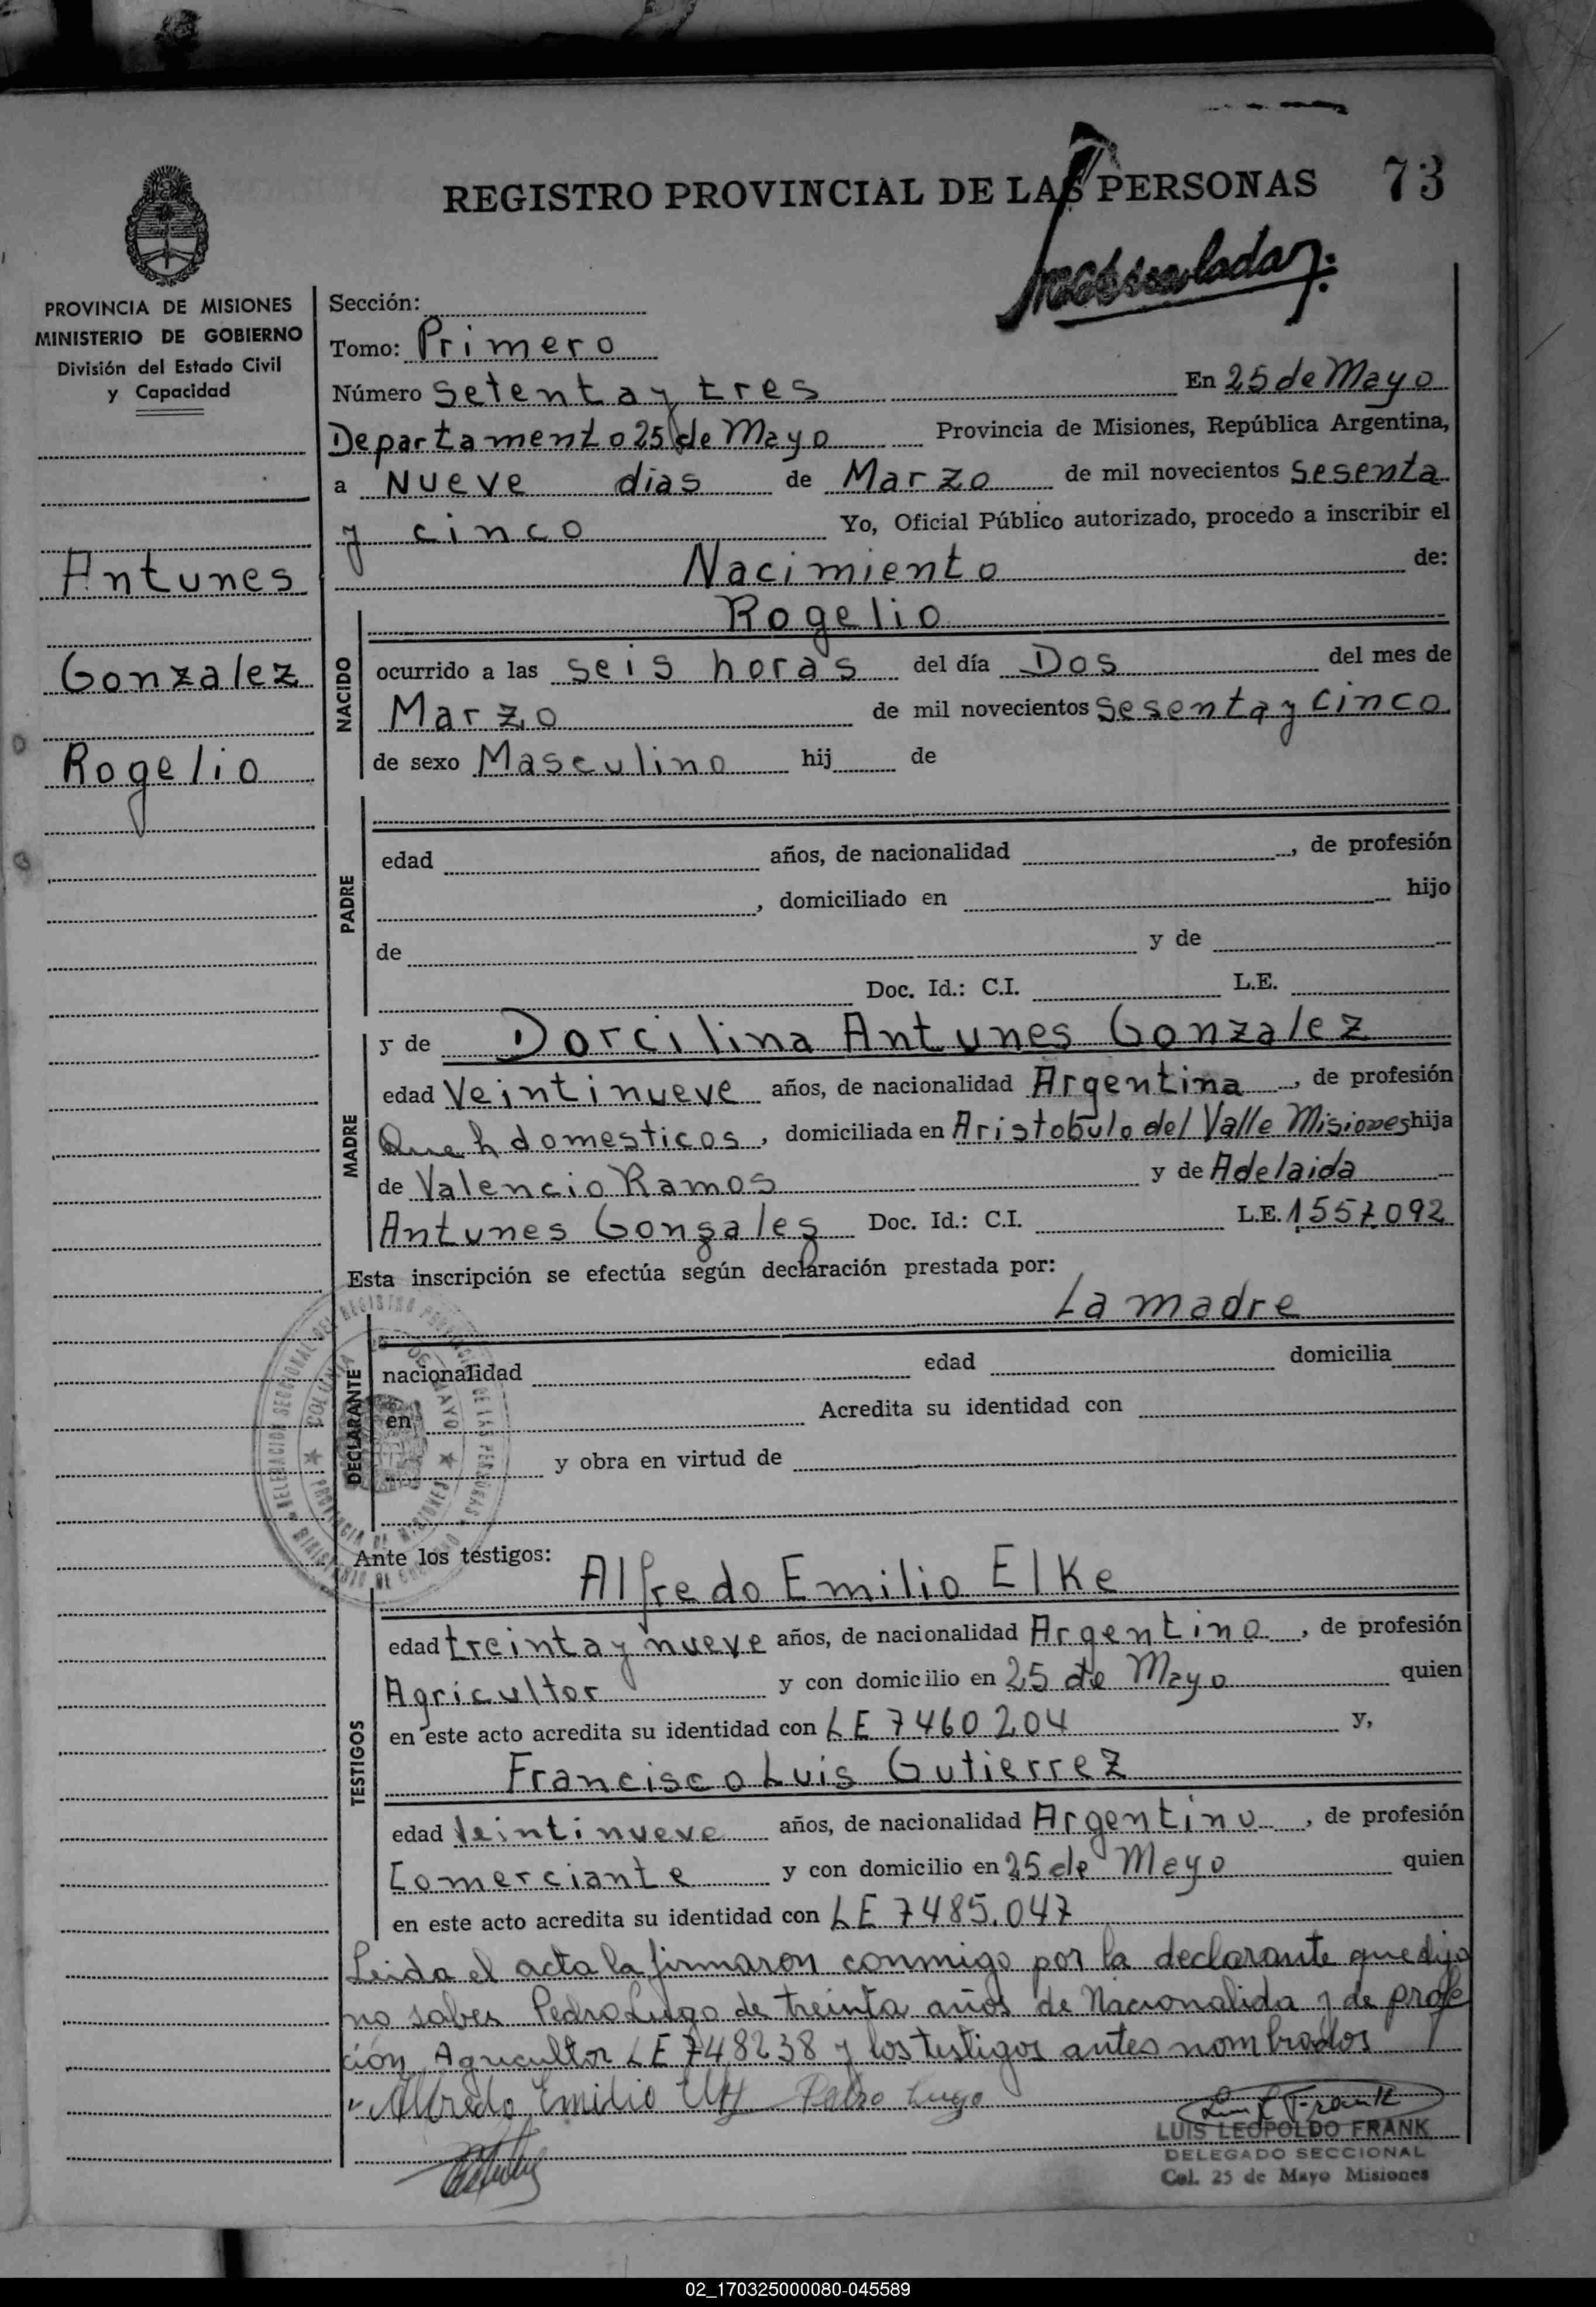 REGISTRO PROVINCIAL DE LAS PERSONAS 73
PROVINCIA DE MISIONES
MINISTERIO DE GOBIERNO
División del Estado Civil
y Capacidad
Antunes
Gonzalez
Rogelio
Sección:
Tomo: Primero
Número Setenta y tres En 25 de Mayo
Departamento 25 de Mayo Provincia de Misiones, República Argentina,
a Nueve dias de Marzo de mil novecientos sesenta
y cinco Yo, Oficial Público autorizado, procedo a inscribir el
Nacimiento de:
Rogelio
NACIDO
ocurrido a las seis horas del día Dos del mes de
Marzo de mil novecientos sesenta y cinco
de sexo Masculino hij de
PADRE
edad años, de nacionalidad , de profesión
, domiciliado en hijo
de y de
Doc. Id.: C.I. L.E.
MADRE
y de Dorcilina Antunes Gonzalez
edad Veintinueve años, de nacionalidad Argentina , de profesión
Queh domesticos , domiciliada en Aristobulo del Valle Misiones hija
de Valencio Ramos y de Adelaida
Antunes Gonzales Doc. Id.: C.I. L.E. 1557092
Esta inscripción se efectúa según declaración prestada por:
La madre
DECLARANTE
nacionalidad edad domicilia
en Acredita su identidad con
y obra en virtud de
Ante los testigos:
Alfredo Emilio Elke
TESTIGOS
edad treinta y nueve años, de nacionalidad Argentino , de profesión
Agricultor y con domicilio en 25 de Mayo quien
en este acto acredita su identidad con LE 7460204 y,
Francisco Luis Gutierrez
edad Veintinueve años, de nacionalidad Argentino , de profesión
Comerciante y con domicilio en 25 de Mayo quien
en este acto acredita su identidad con LE 7485.047
Leida el acta la firmaron conmigo por la declarante que dijo
no saber Pedro Lugo de treinta años de Nacionalida y de profe
ción Agricultor LE 748238 y los testigos antes nombrados
Alfredo Emilio Pedro Lugo
Luis L Frank
LUIS LEOPOLDO FRANK
DELEGADO SECCIONAL
Col. 25 de Mayo Misiones
02_170325000080-045589